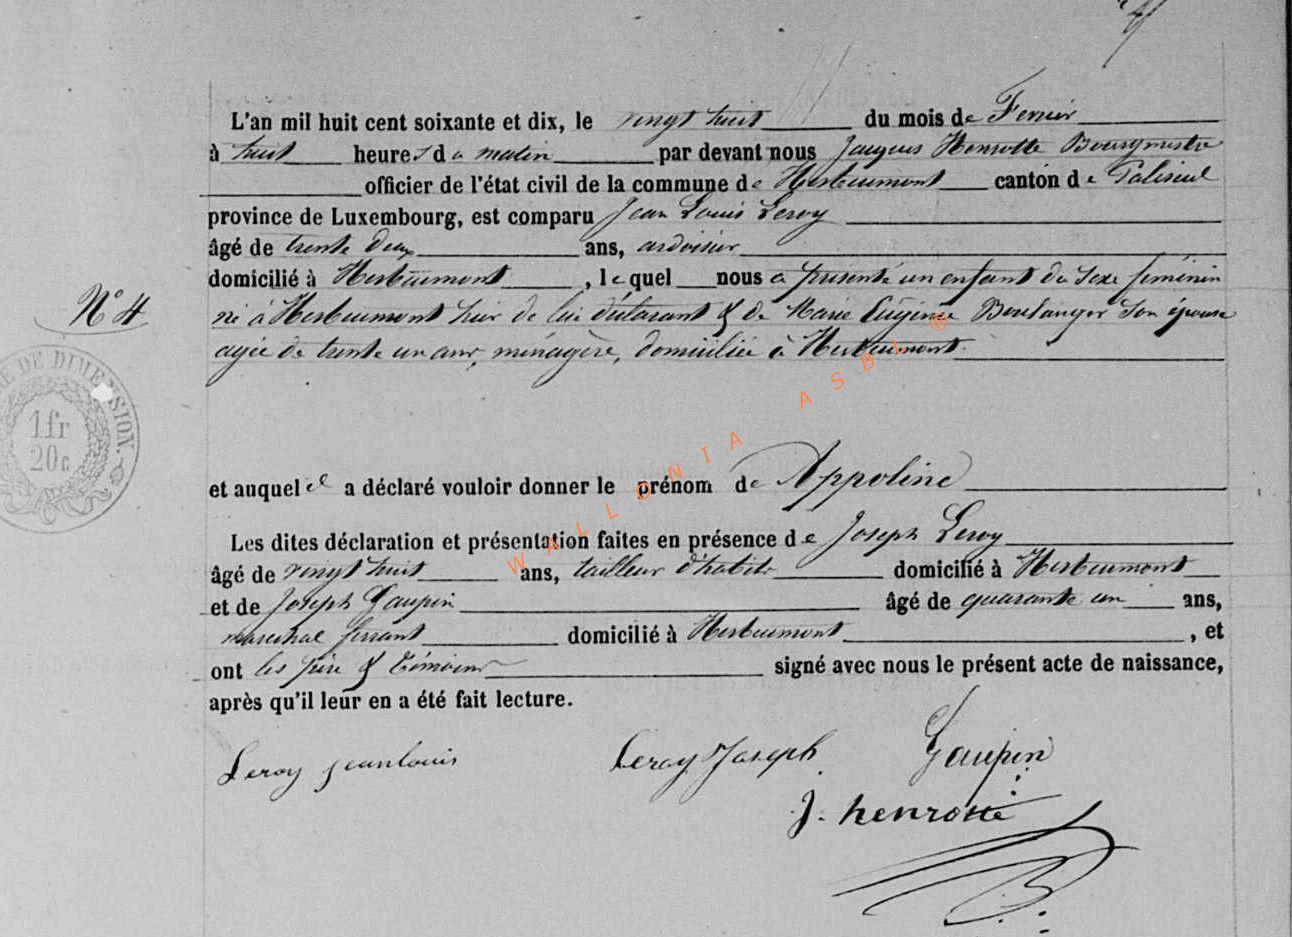 L'an mil huit cent soixante et dix, le vingt huit du mois de Fevrier
à huit heures du matin par devant nous Jacques Henrotte Bourgmestre
officier de l'état civil de la commune de Herbeumont canton de Paliseul
province de Luxembourg, est comparu Jean Louis Leroy
âgé de trente deux ans, ardoisier
domicilié à Herbeumont, lequel nous a présenté un enfant du sexe féminin
N° 4
né à Herbeumont hier de lui déclarant & de Marie Eugénie Boulanger son épouse
agée de trente un ans, ménagère, domiciliée à Herbeumont.
RE DE DIMENSION.
1fr
20c
et auquel il a déclaré vouloir donner le prénom de Appoline
WALLONIA ASBL ®
Les dites déclaration et présentation faites en présence de Joseph Leroy
âgé de vingt huit ans, tailleur d'habits domicilié à Herbeumont
et de Joseph Gaupin âgé de quarante un ans,
marechal ferrant domicilié à Herbeumont, et
ont les père & témoins signé avec nous le présent acte de naissance,
après qu'il leur en a été fait lecture.
Leroy jeanlouis Leroy Joseph Gaupin
J. henrotte